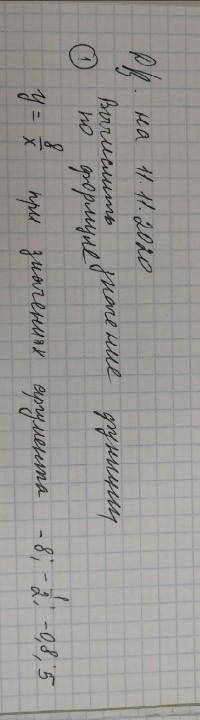 р/з. на 11.11.2020
① Вычислить значение функции
по формуле
y = 8/x при значениях аргумента -8; -1/2; -0,8; 5